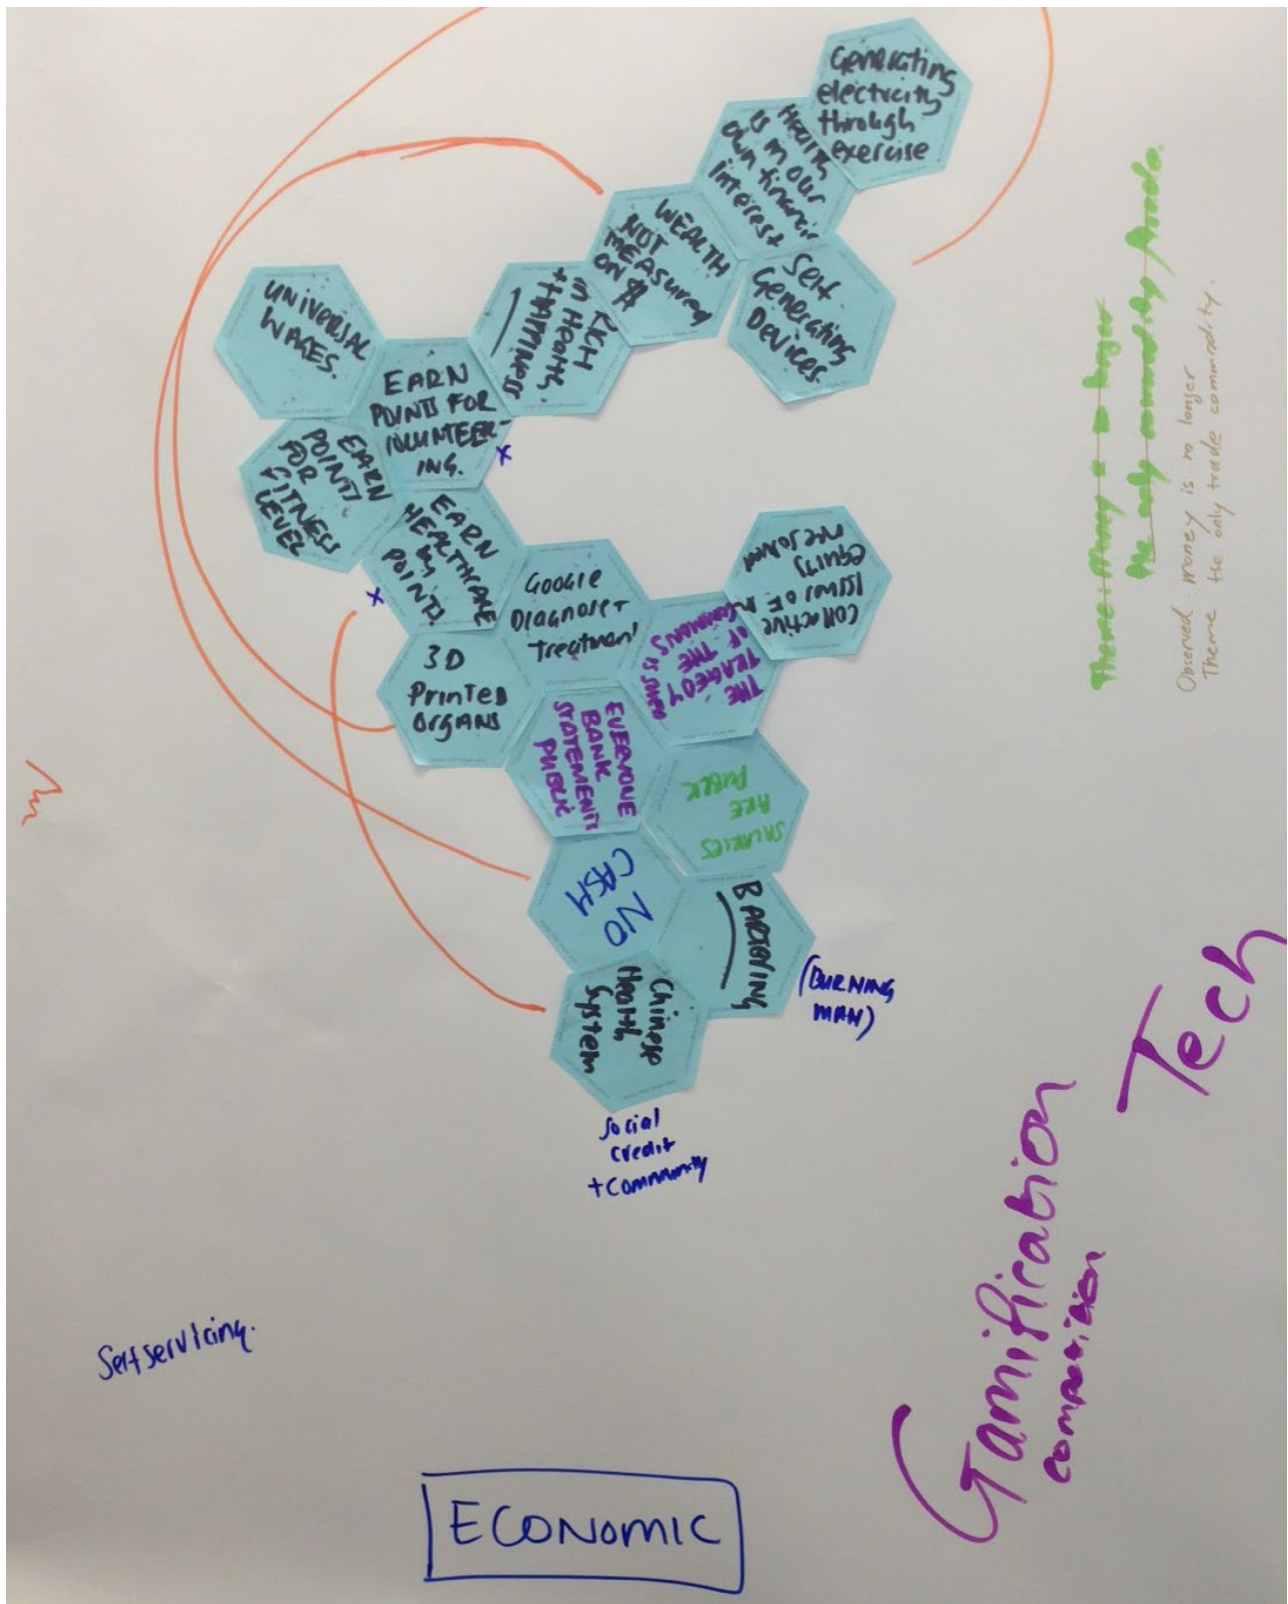 Generating
electricity
through
exercise
Health
is in our
own financi
interest
WEALTH
NOT
MEASURED
ON $
Self
Generating
Devices.
RICH
in Health
+ HAPPINESS
UNIVERSAL
WAGES.
EARN
POINTS FOR
VOLUNTEER-
ING.
x
EARN
POINTS
FOR
FITNESS
LEVEL
EARN
HEALTHCARE
by
POINTS.
x
GOOGLE
Diagnose +
Treatment
3D
Printed
Organs
collective
issues of
equity
resolved
THE
TRAGEDY
OF THE
COMMONS IS
EVERYONE
BANK
STATEMENTS
PUBLIC
SALARIES
ARE
PUBLIC
NO
CASH
BARTERING
(BURNING
MAN)
Chinese
Health
System
Social
credit
+ Community
Theme: Money is no longer
the only commodity trade.
Observed: money is no longer
Theme the only trade commodity.
Tech
Gamification
competition
Self servicing.
ECONOMIC